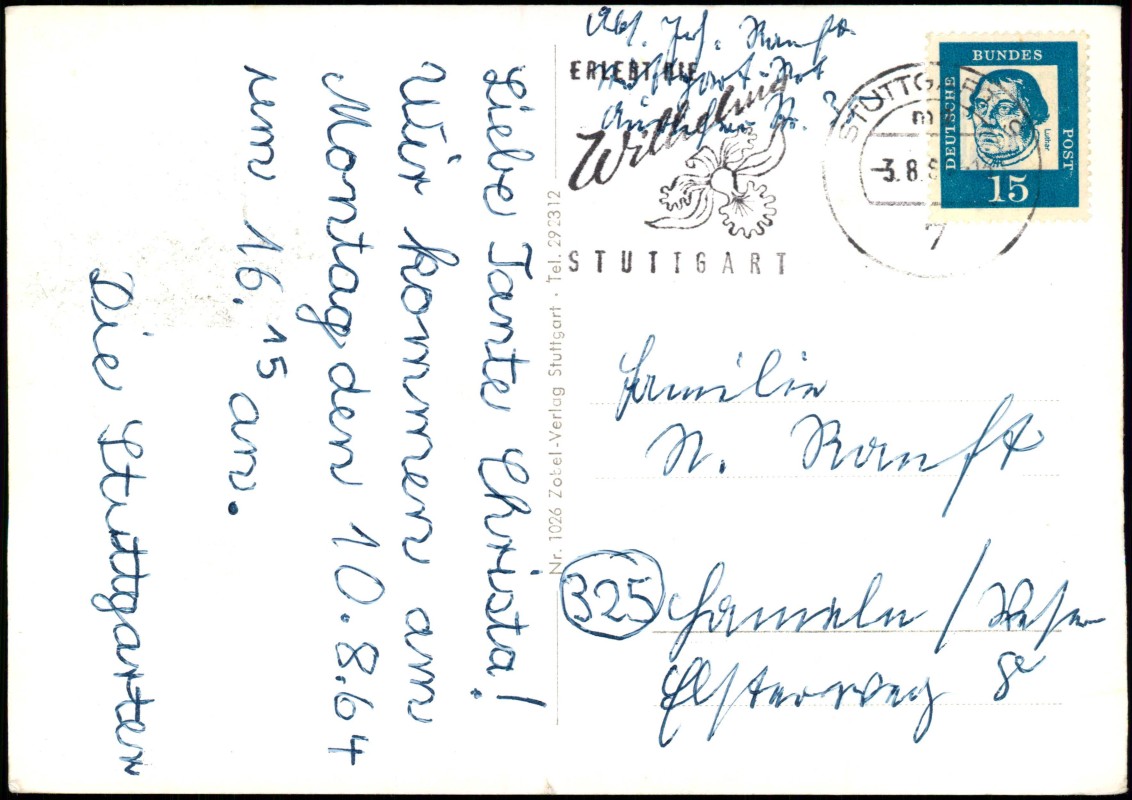 Liebe Tante Christa!
Wir kommen am
Montag den 10.8.64
um 16.15 an.
Die Stuttgarter
Nr. 1026 Zobel-Verlag Stuttgart · Tel. 292312
Abs.
ERLEBT DIE
Wilhelma
STUTTGART
STUTTGART
3.8.
7
DEUTSCHE
BUNDES
POST
Luther
15
Familie
N. Ranft
325 Hameln / Weser
Elsterweg